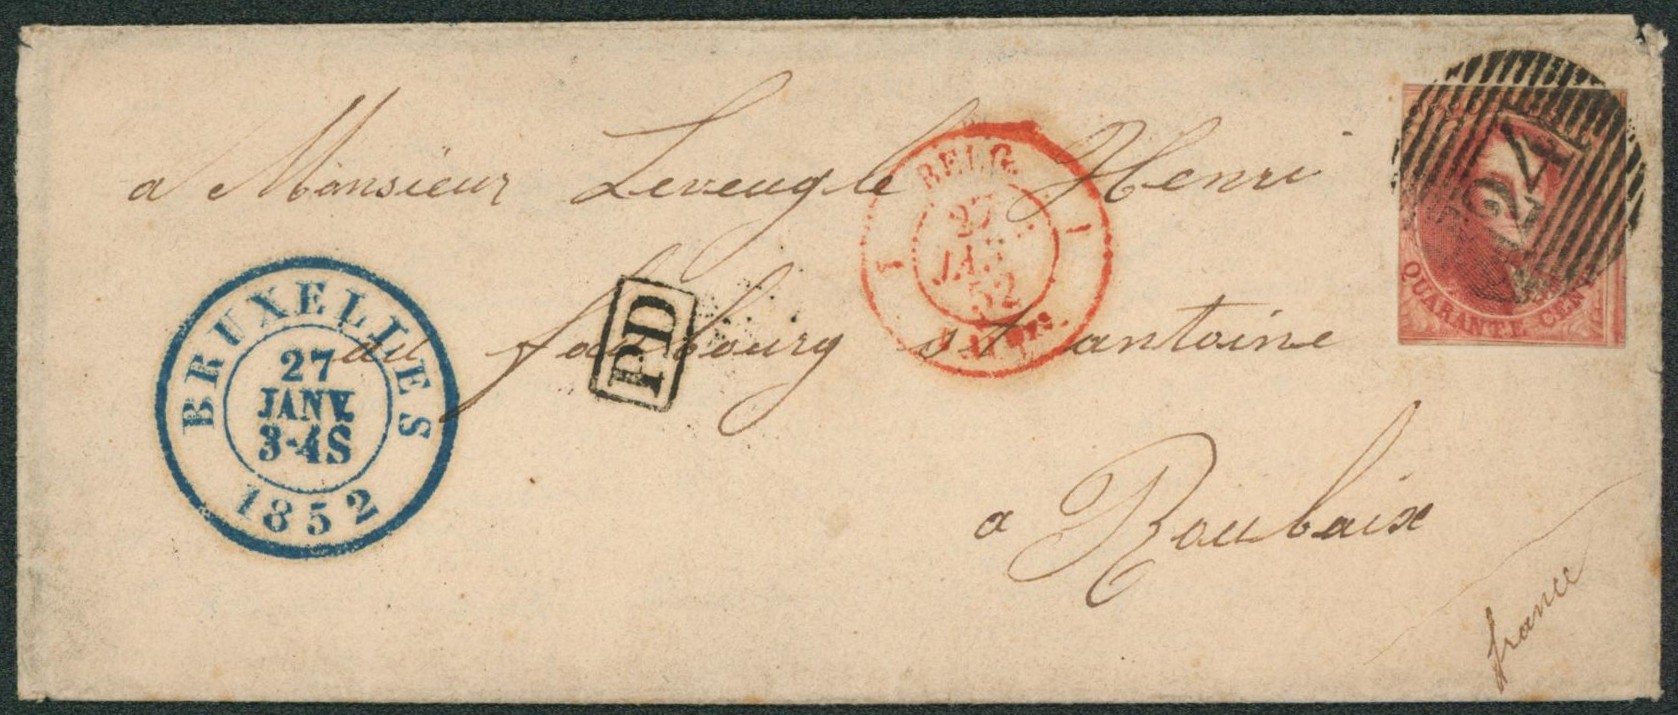 a Monsieur Leveugle Henri
du faubourg st antoine
a Roubaix
france
BRUXELLES
27
JANV.
3-4S
1852
PD
BELG.
27
JANV.
52
24
QUARANTE CENT